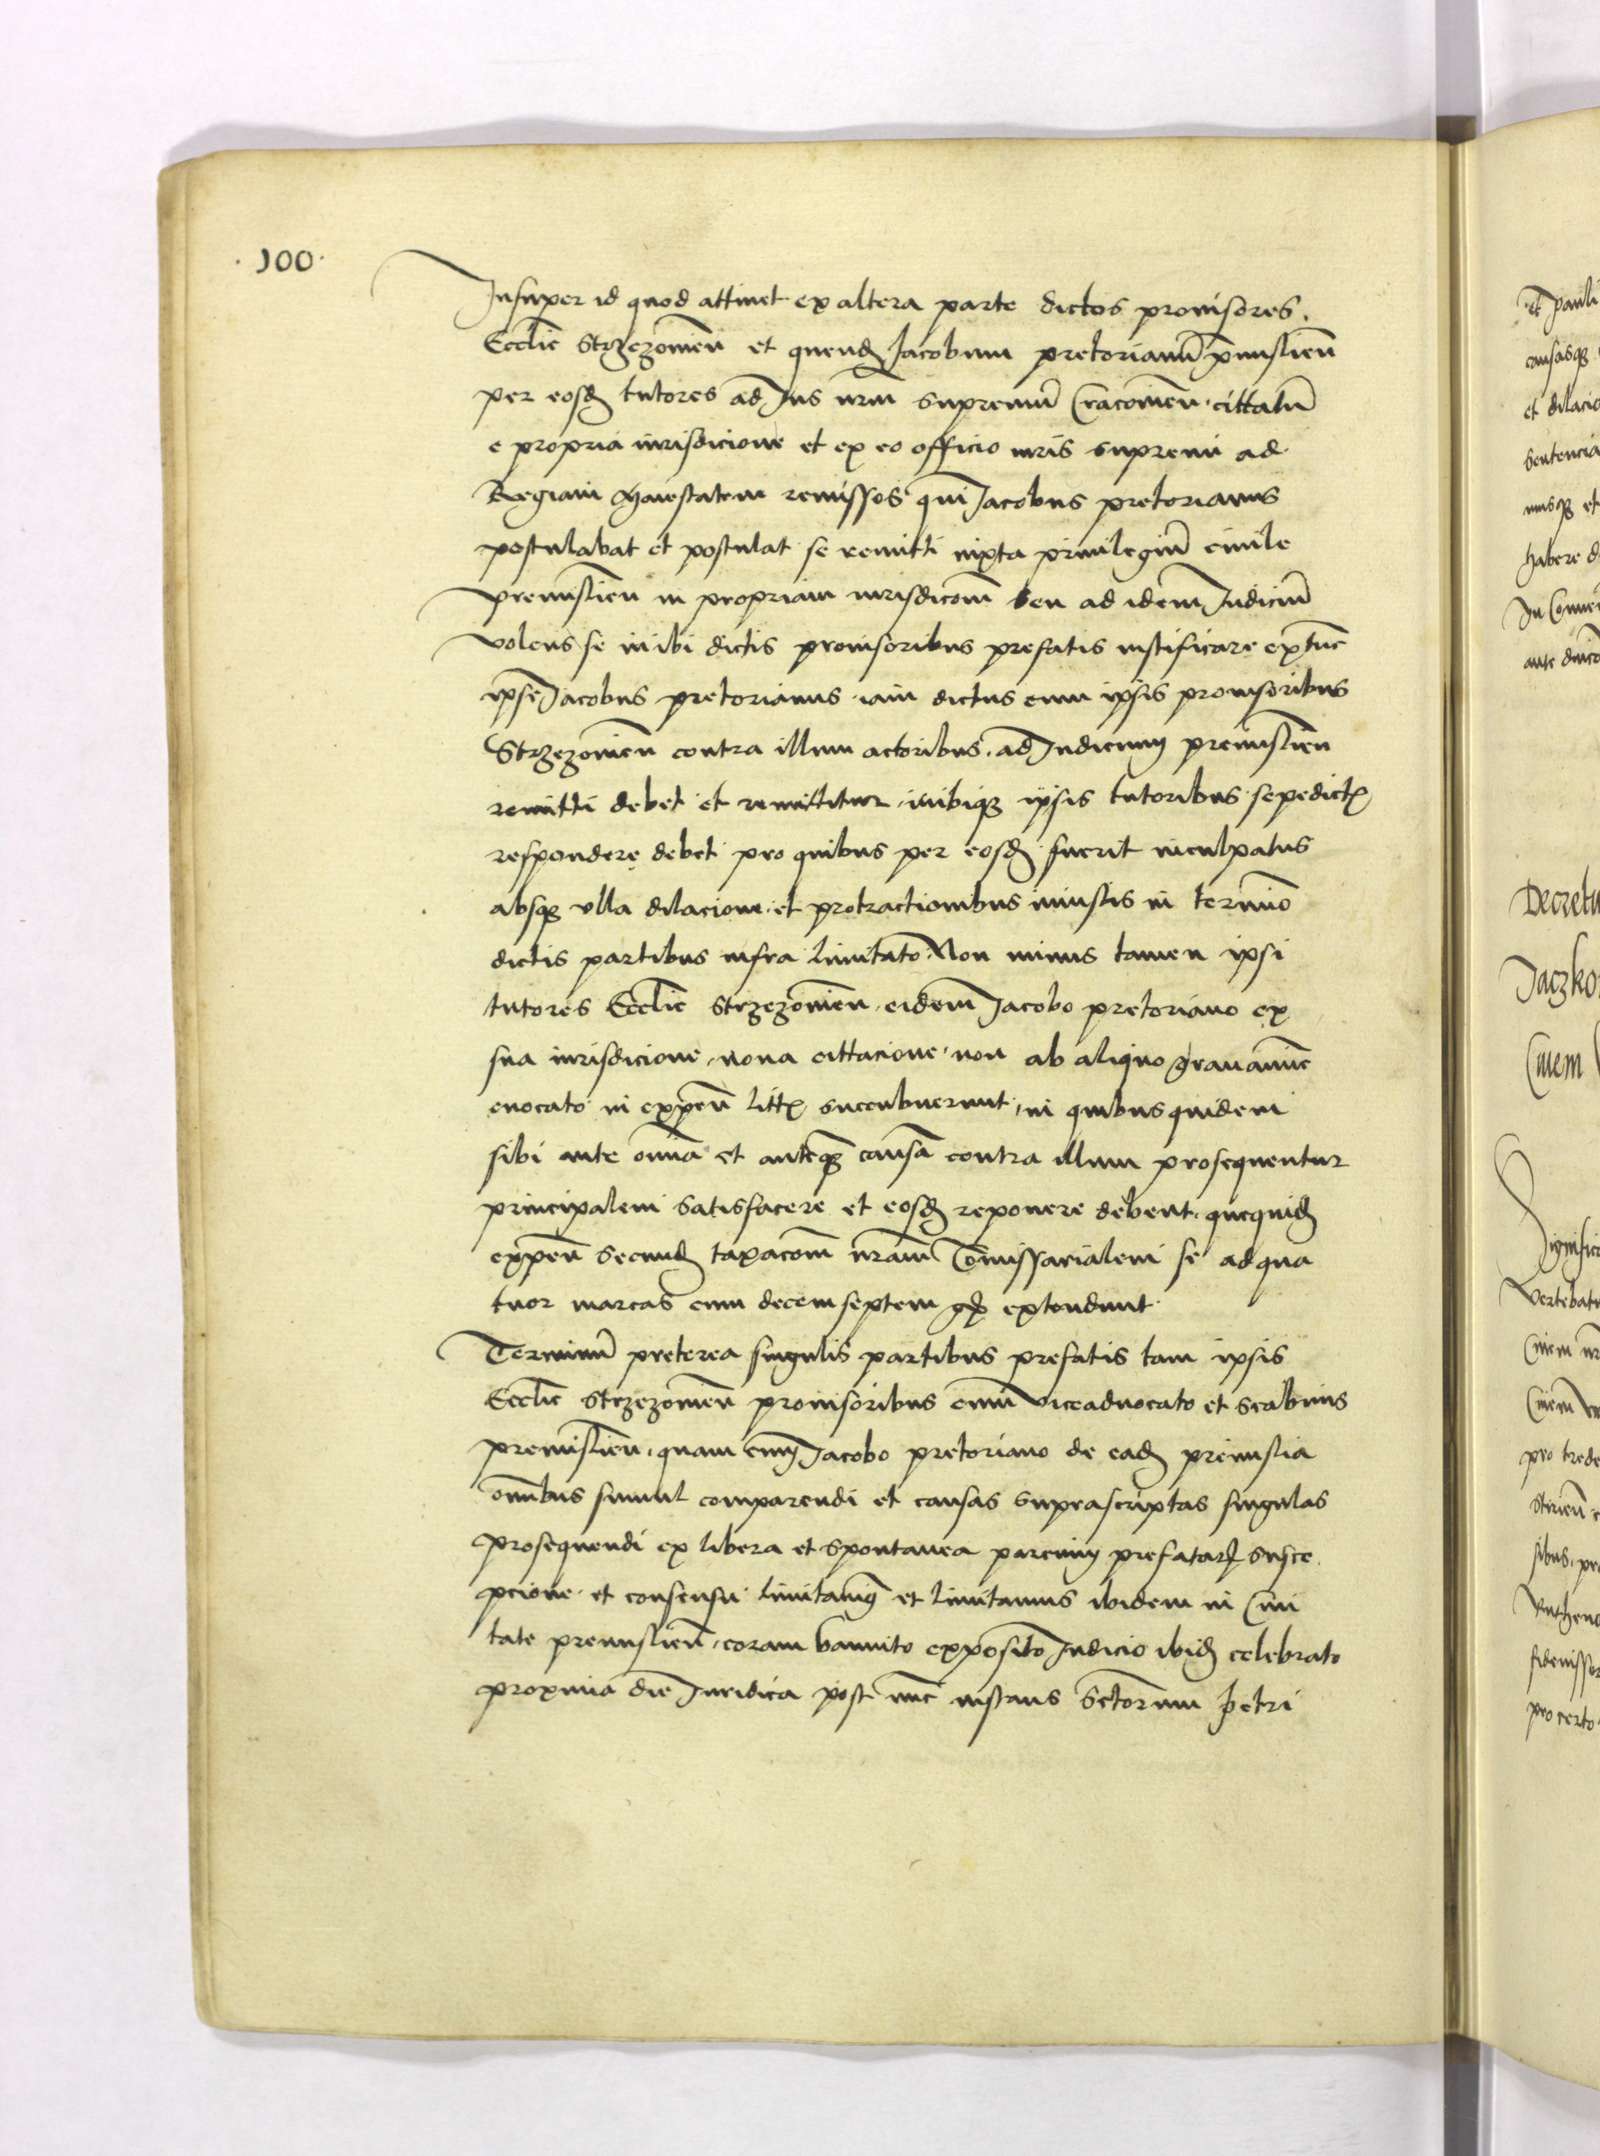 · 100 ·
Insuper id quod attinet ex altera parte dictos provisores.
Ecclīe Strzezovieñ et quendā Jacobum pretorianū p̄misslieñ
per eosdē tutores ad Jus nr̄m supremū Cracovieñ · cittatū
e propria iurisdicione et ex eo officio iuris supremi ad
Regiam Maiestatem remissos qui Jacobus pretorianus
postulabat et postulat se remitti iuxta privilegiū civile
premislieñ in propriam iurisdicōm seu ad idem Judiciū
volens se inibi dictis provisoribus prefatis iustificare extunc
ipse Jacobus pretorianus iam dictus cum ipsis provisoribus
Strzezovieñ contra illum actoribus, ad Judicium premislieñ
remitti debet et remittitur, inibiqȝ ipsis tutoribus sepedictꝭ
respondere debet pro quibus per eosdē fuerit inculpatus
absqȝ ulla dilacione et protractionibus iniustis in termino
dictis partibus infra limitato. Non minus tamen ipsi
tutores Ecclīe Strzezovieñ eidem Jacobo pretoriano ex
sua iurisdicione, nova cittacione, non ab aliquo gravamine
evocato in expeñ littꝭ succubuerunt, in quibus quidem
sibi ante omnia et anteqȝ causā contra illum prosequentur
principalem satisfacere et eosdē reponere debent. quequidē
expeñ secundū taxacōm nr̄am Cōmissarialem se ad qua
tuor marcas cum decem septem gꝭ extendunt.
Terminū preterea singulis partibus prefatis tam ipsis
Ecclīe Strzezovieñ provisoribus cum viceadvocato et scabinis
premislieñ, quam cum Jacobo pretoriano de eadē premislia
omībus simul comparendi et causas suprascriptas singulas
prosequendi ex libera et spontanea parcium prefatarꝝ susce
pcione et consensu limitavimꝰ et limitamus ibidem in Civi
tate premislieñ, coram bannito exposito Judicio ibidē celebrato
proxima die Juridica post nūc instans Sctorum Petri